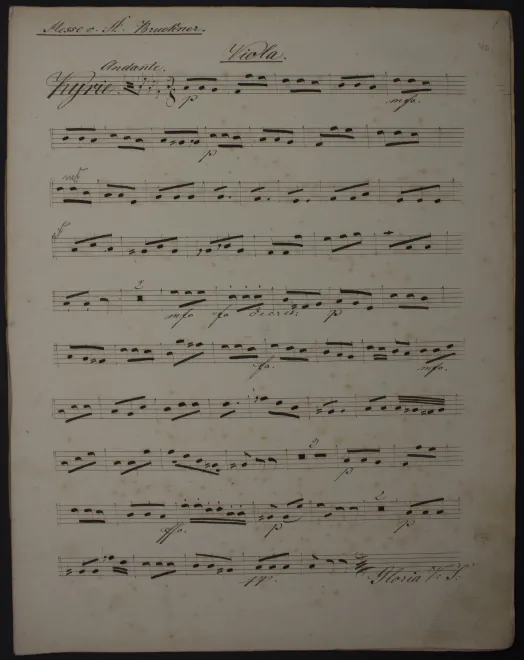 Messe v. A. Bruckner.
Viola.
Andante.
Kyrie.
p mfo.
p
mfo
f
2
mfo fo decres: p
fo. mfo.
3
p
2
ffo. p p
pp.
Gloria V. S.